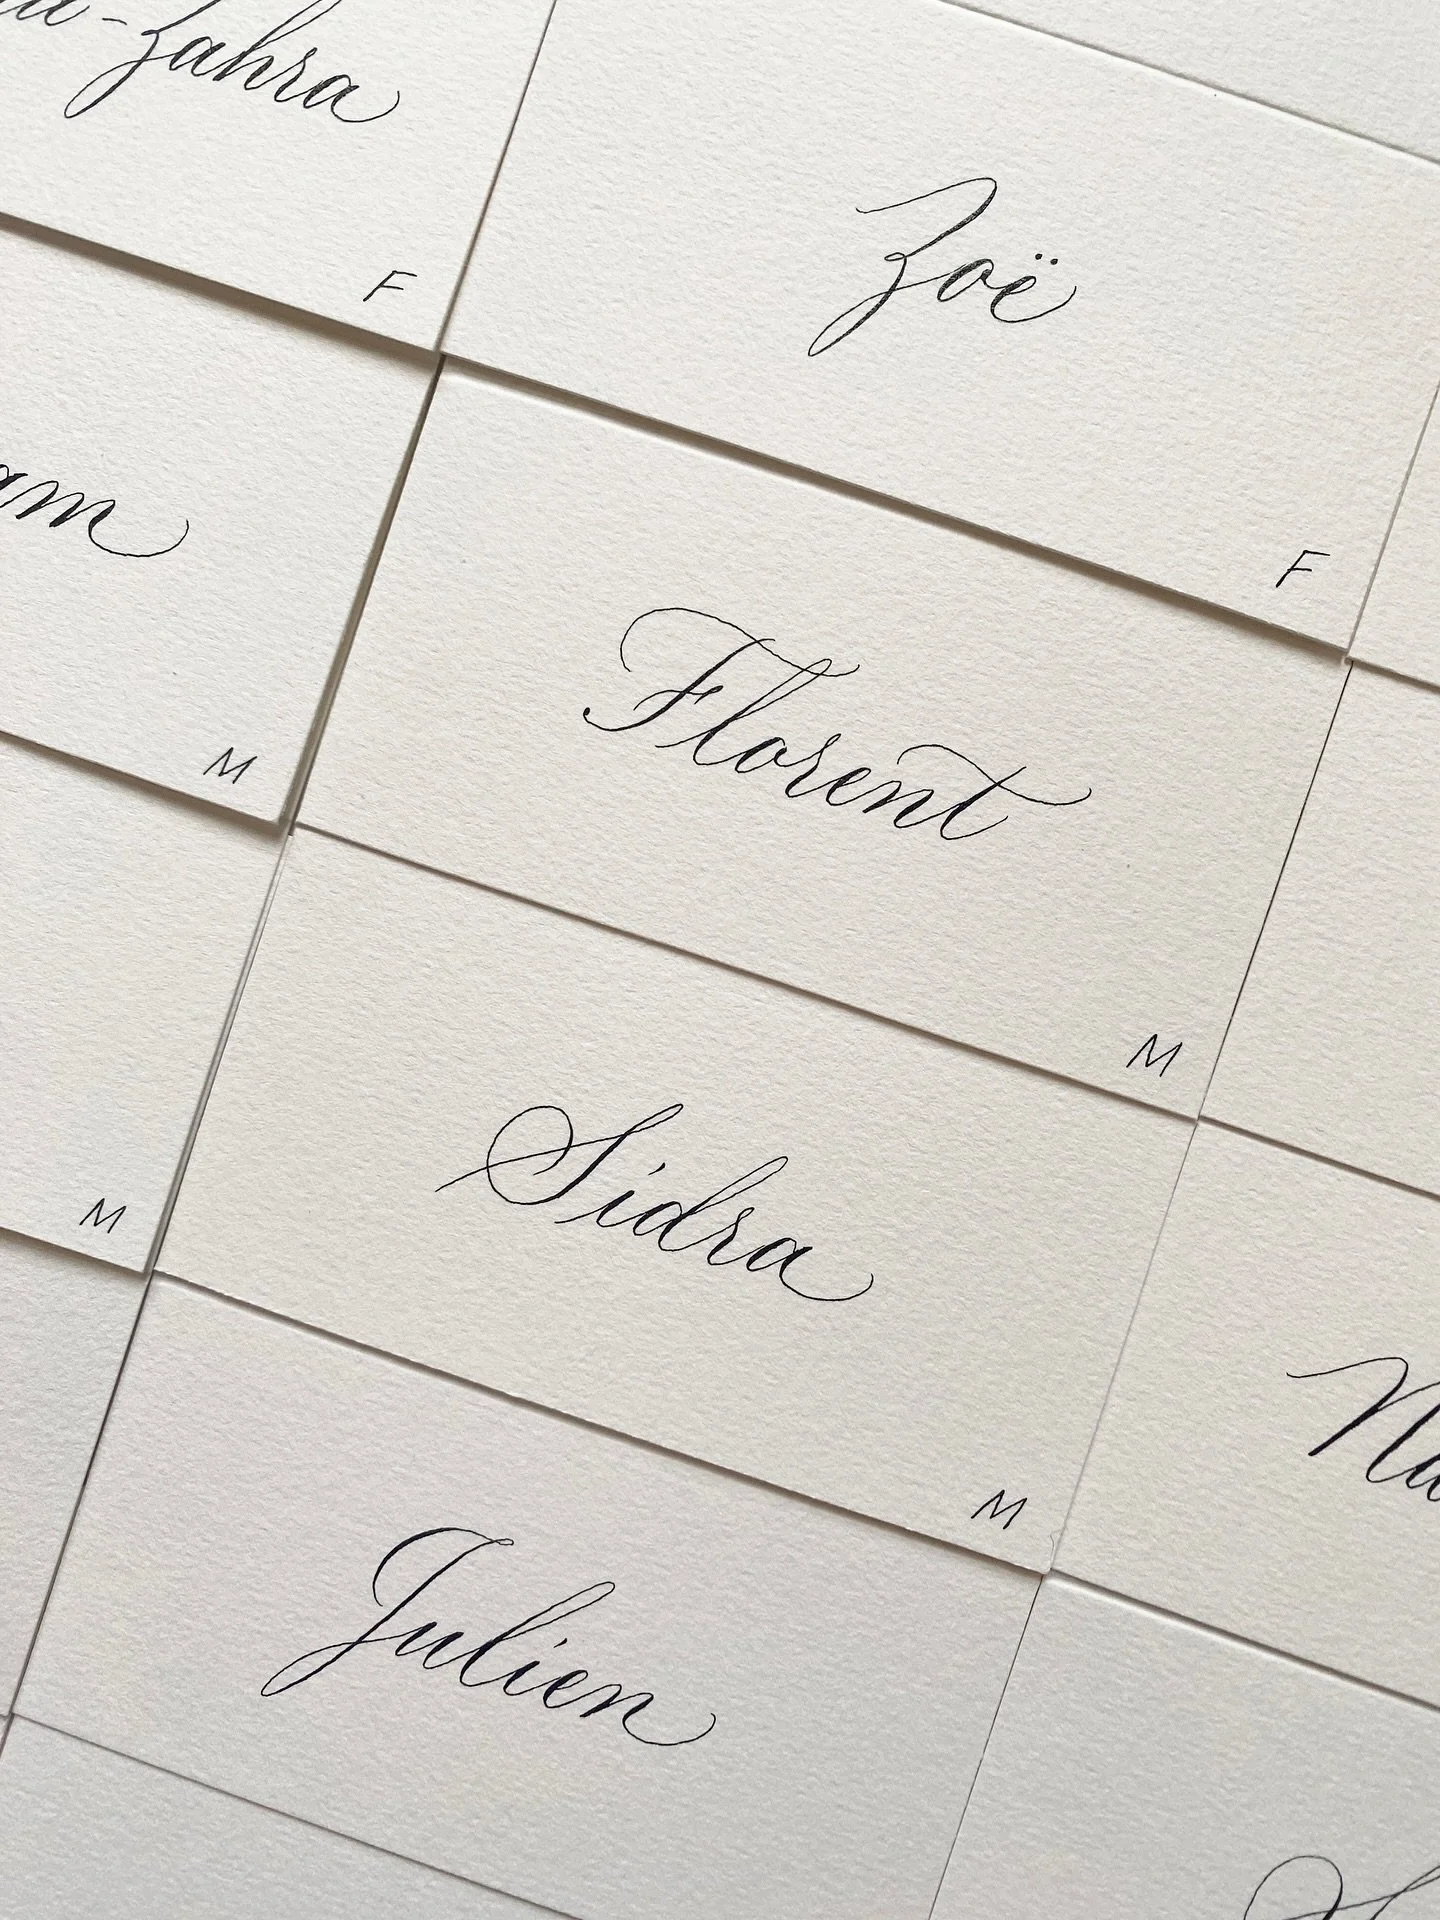 -Zahra
F
Zoë
F
am
M
Florent
M
M
Sidra
M
Julien